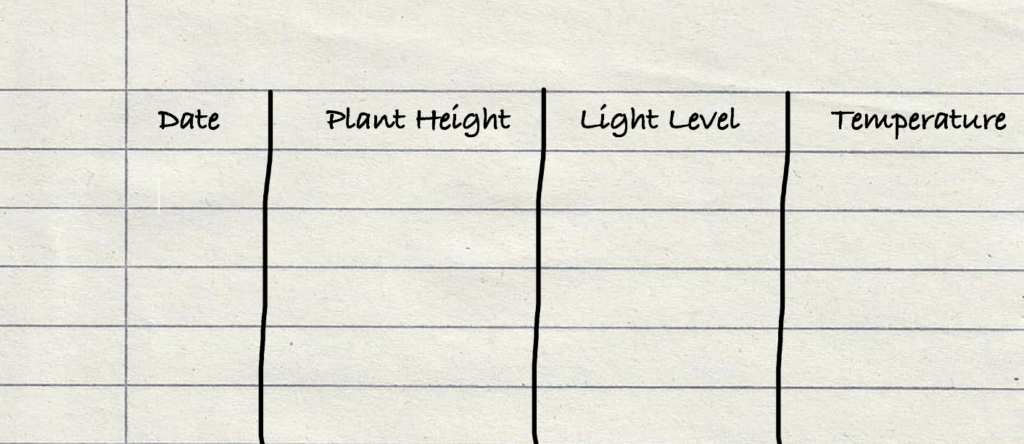 Date Plant Height Light Level Temperature